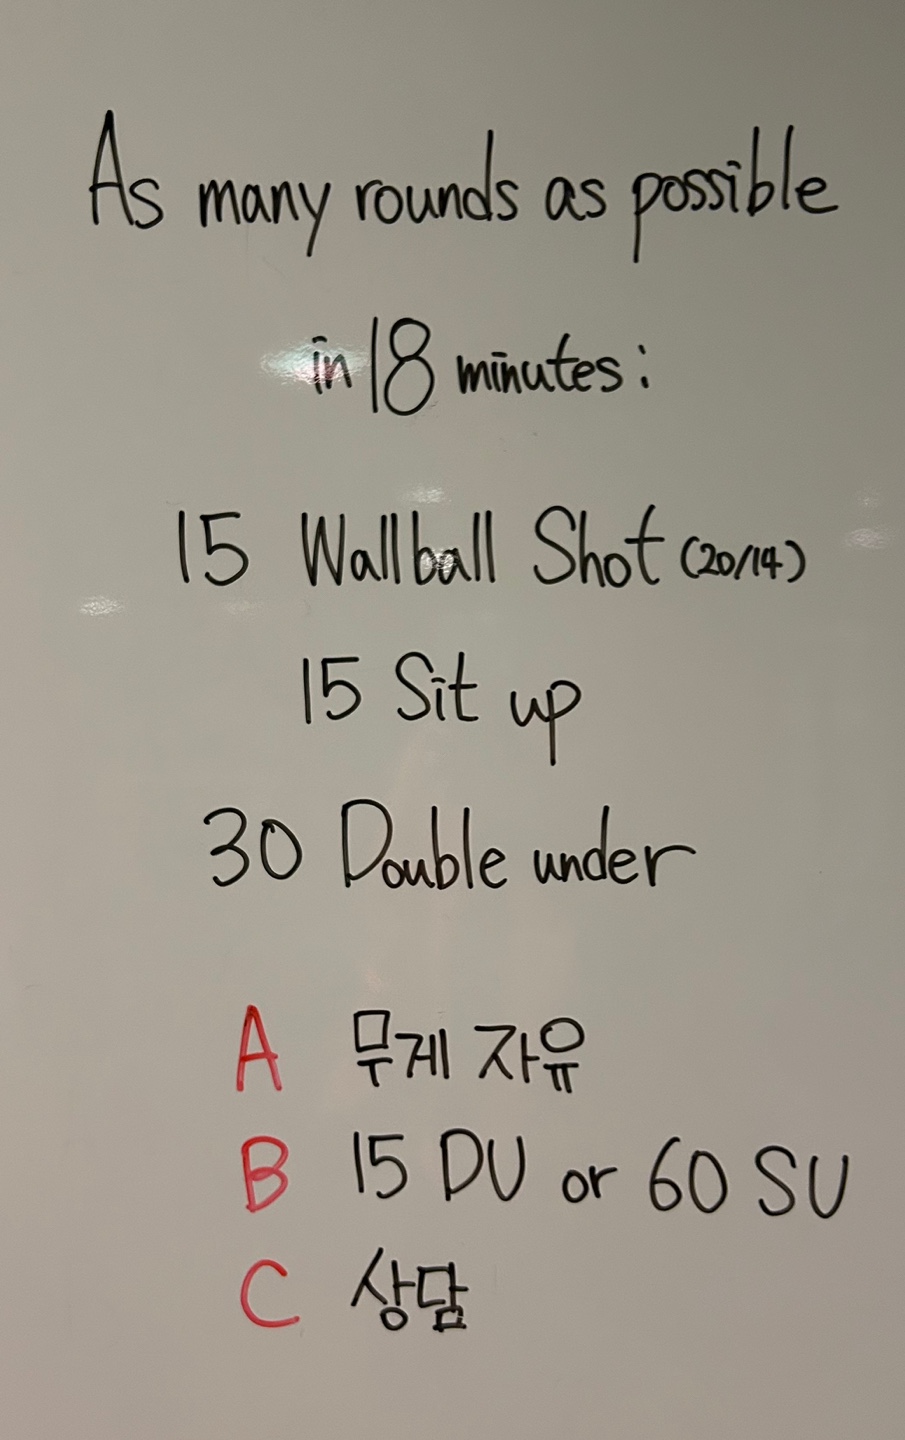 As many rounds as possible
in 18 minutes:
15 Wallball Shot (20/14)
15 Sit up
30 Double under
A 무게 자유
B 15 DU or 60 SU
C 상담